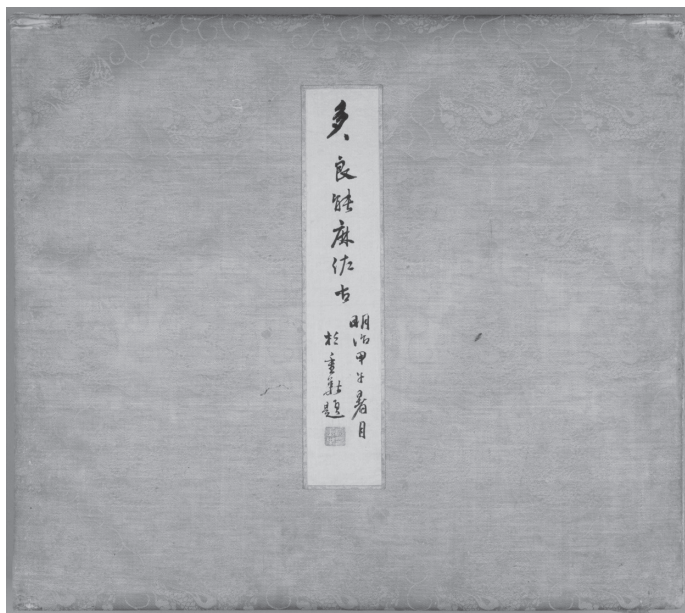 多々良能麻佐古
明治甲午暑月
杉重華題